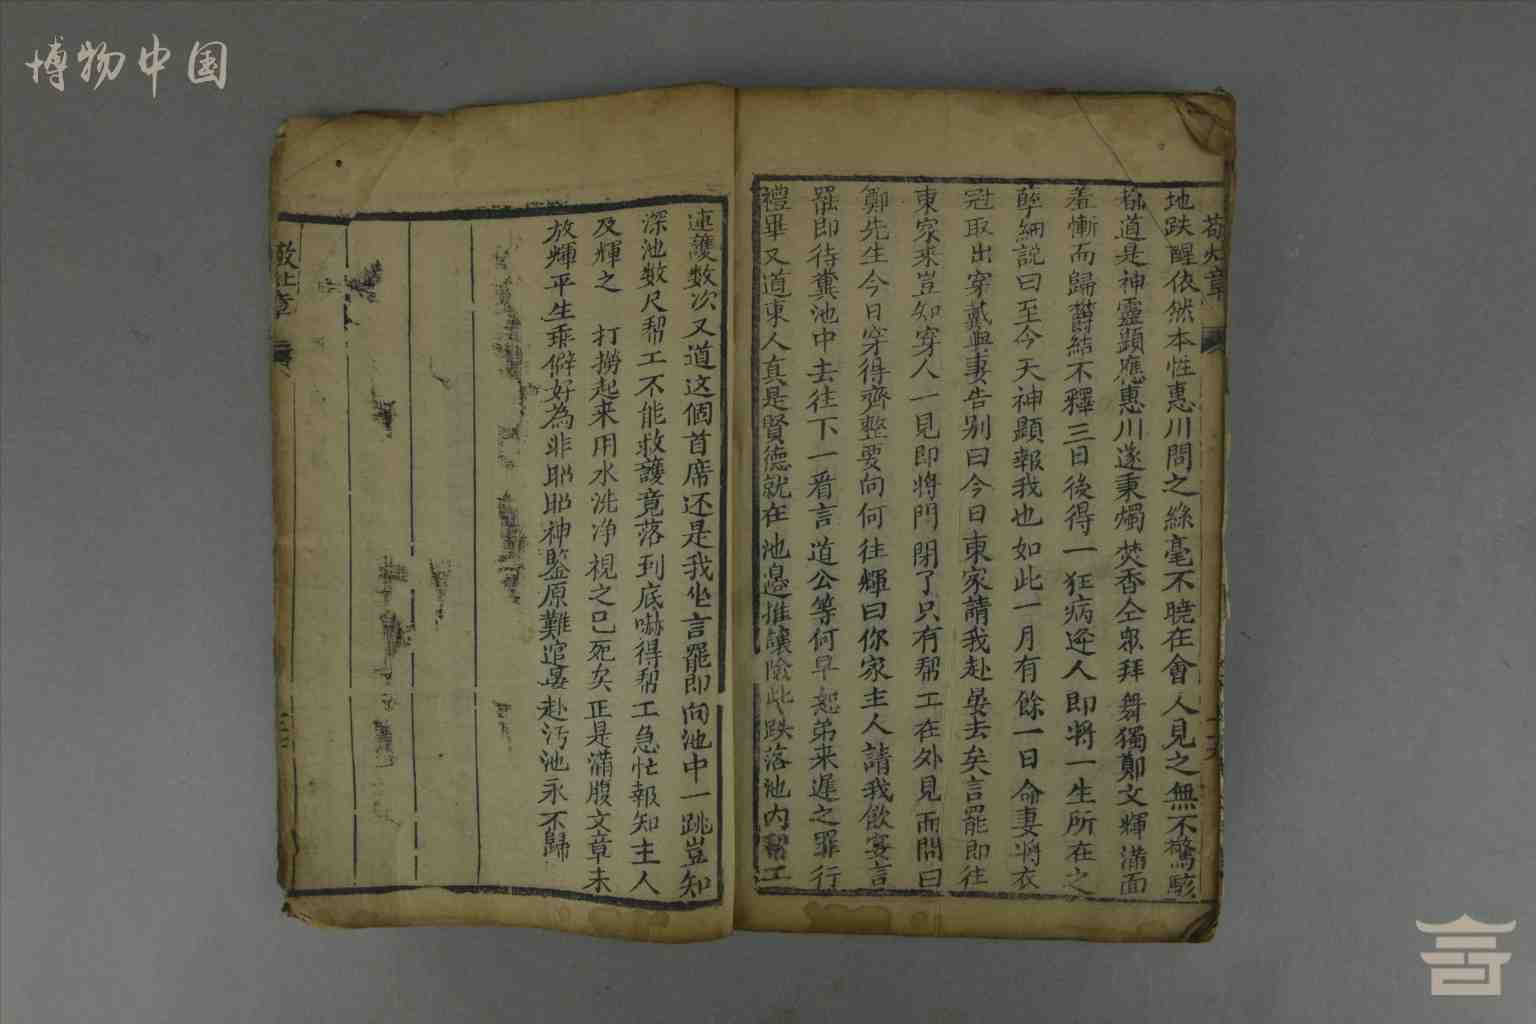 博物中国
地跌醒依然本性惠川問之絲毫不曉在會人見之無不驚駭
道是神靈顯應惠川遂秉燭焚香仝眾拜舞獨鄭文輝滿面
羞慚而歸欝結不釋三日後得一狂病逢人即將一生所在之
孽細說曰至今天神顯報我也如此一月有餘一日命妻將衣
冠取出穿戴與妻告別曰今日東家請我赴晏去矣言罷即往
東家来豈知穿人一見即將門閉了只有帮工在外見而問曰
鄭先生今日穿得齊整要向何往輝曰你家主人請我飲宴言
罷即待糞池中去往下一看言道公等何早起弟来遲之罪行
禮畢又道東人真是賢德就在池邊推讓險此跌落池内帮工
連護数次又道这個首席还是我坐言罷即向池中一跳豈知
深池数尺帮工不能救護竟落到底嚇得帮工急忙報知主人
及輝之 打撈起来用水洗净視之已死矣正是滿腹文章未
放輝平生乖僻好為非耶耶神鑒原難逭晏赴汚池永不歸